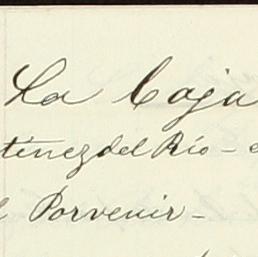 La Caja
tinez del Rio - e
l Porvenir -